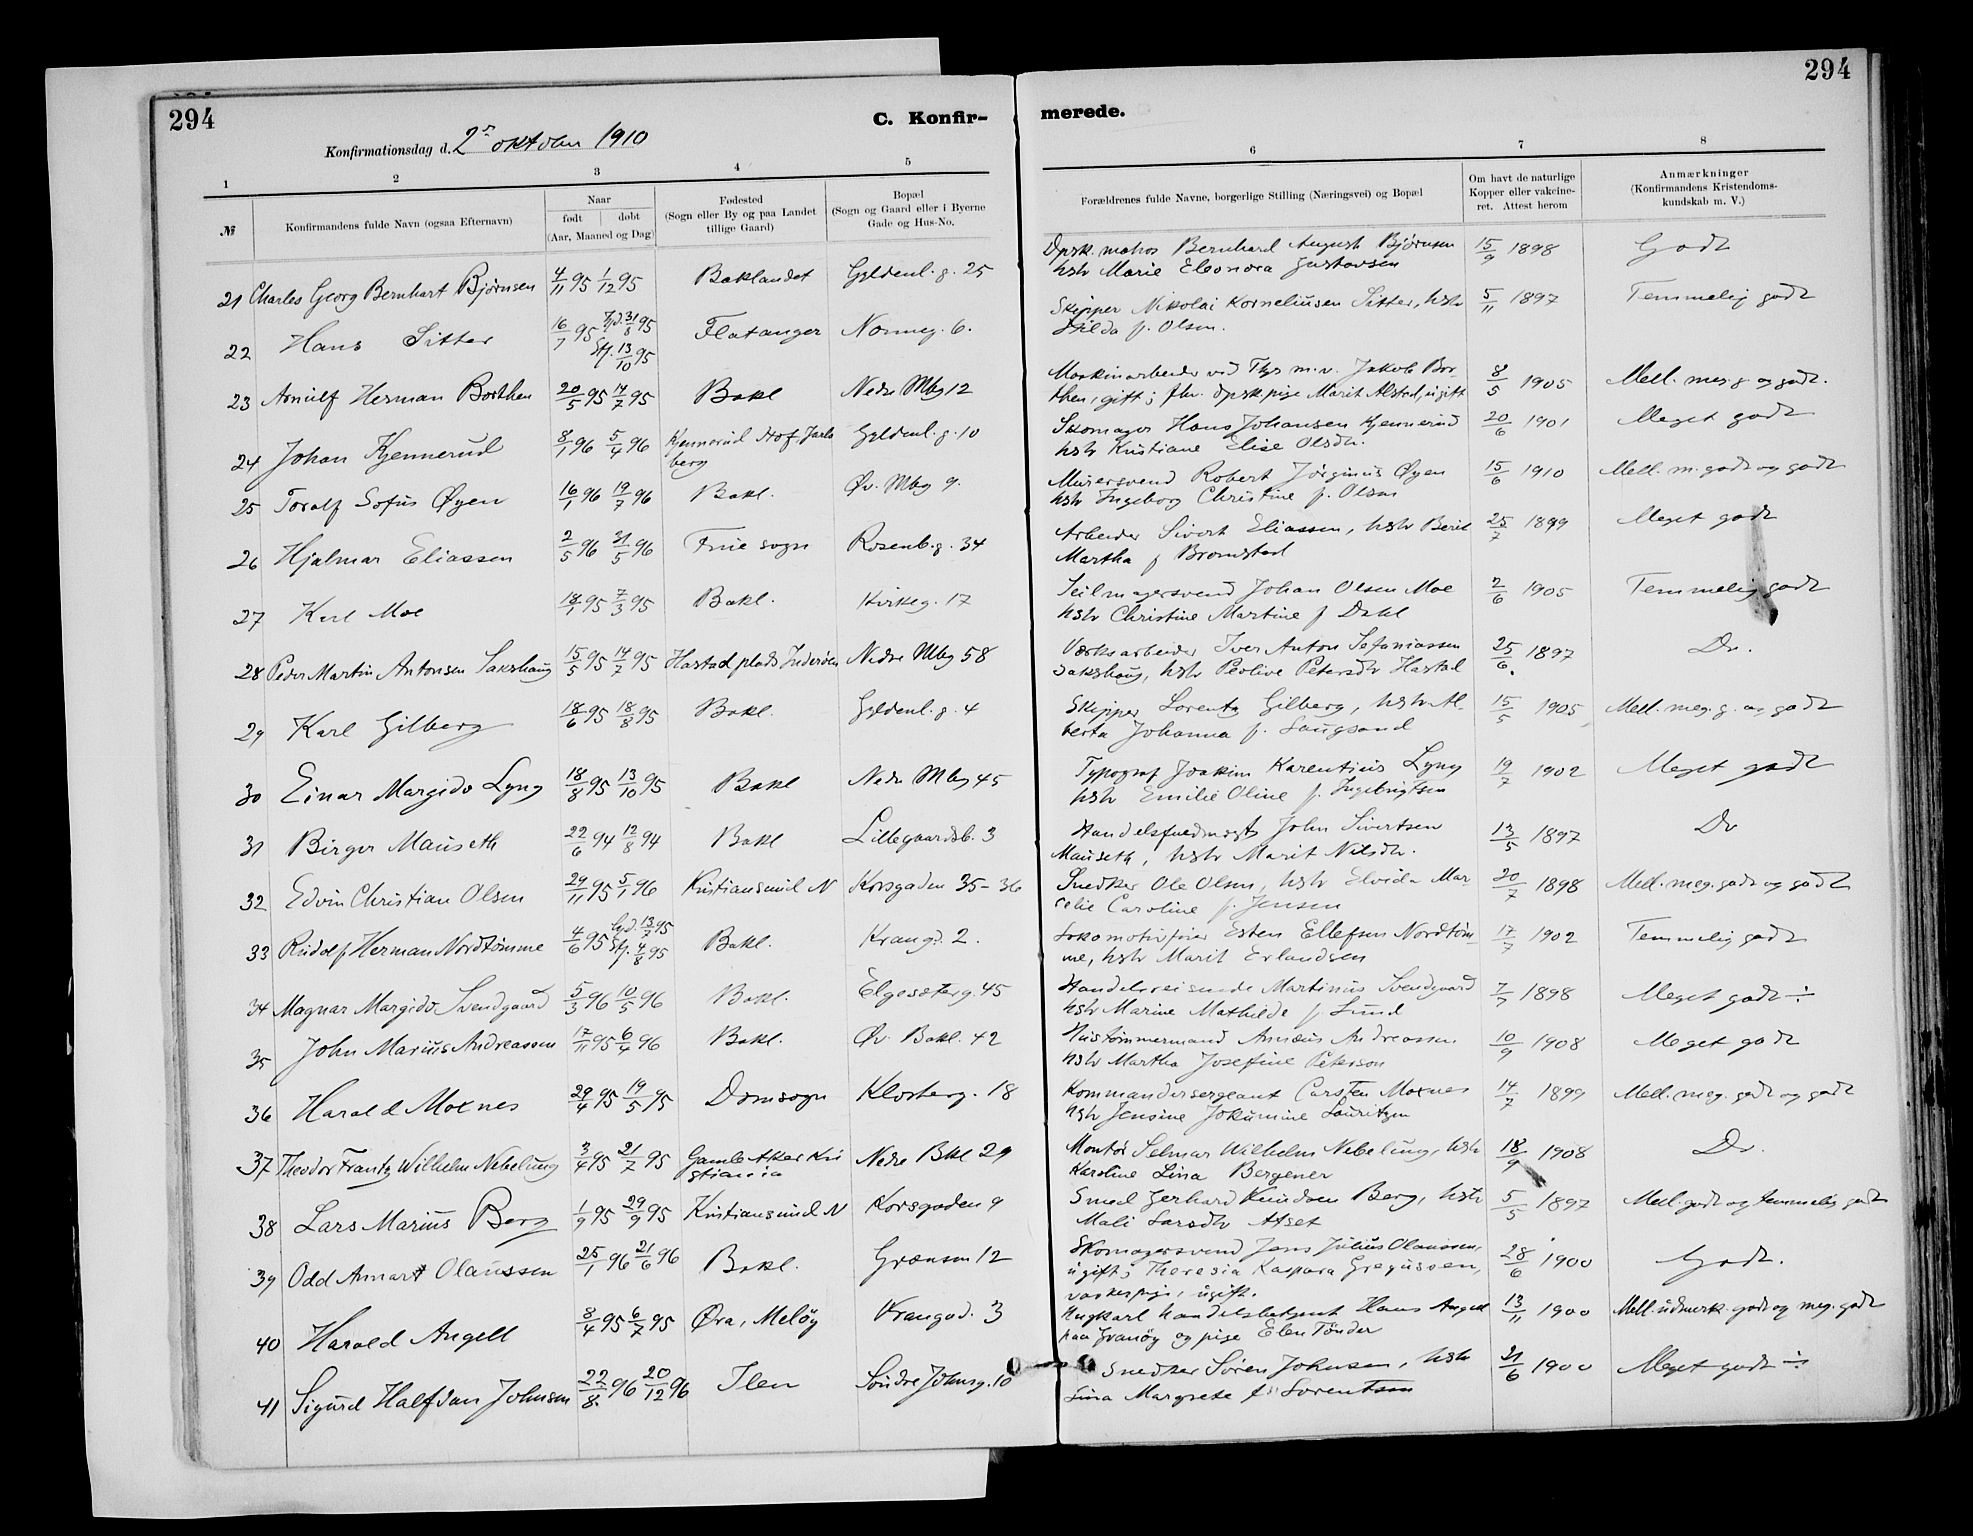 294
294
C. Konfir-
merede.
Konfirmationsdag d. 2n oktober 1910
1 2 3 4 5 6 7 8
№
Konfirmandens fulde Navn (ogsaa Efternavn)
Naar
født | døbt
(Aar, Maaned og Dag)
Fødested
(Sogn eller By og paa Landet
tillige Gaard)
Bopæl
(Sogn og Gaard eller i Byerne
Gade og Hus-No.
Forældrenes fulde Navne, borgerlige Stilling (Næringsvei) og Bopæl
Om havt de naturlige
Kopper eller vakcine-
ret. Attest herom
Anmærkninger
(Konfirmandens Kristendoms-
kundskab m. V.)
21 Charles Georg Bernhart Bjørnsen 4/11 95 1/12 95 Baklandet Gyldenl. g. 25 Dpsk. matros Bernhard August Bjørnsen 15/9 1898 Godt
hstr Marie Eleonora Gustavsen
22 Hans Sitter 16/7 95 Hjd. 31/8 95 Flatanger Nonneg. 6. Skipper Nikolai Korneliusen Sitter, hstr 5/11 1897 Temmelig godt
Stf. 13/10 95 Hilda f. Olsen.
23 Arnulf Herman Borthen 20/5 95 14/7 95 Bakl Nedre Mbg 12 Maskinarbeider ved Thjs m.v. Jakob Bor 8/5 1905 Mell. meg. g og godt.
then, gift; fhv. dpsk.pige Marit Alstad, ugift
24 Johan Kjennerud 8/1 96 5/4 96 Kjennerud Hof Jarls Gyldenl. g. 10 Skomager Hans Johansen Kjennerud 20/6 1901 Meget godt
berg hstr Kristiane Elise Olsdtr.
25 Toralf Sofus Øyen 16/1 96 19/7 96 Bakl. Øv. Mbg 9. Murersvend Robert Jørginius Øyen 15/6 1910 Mell. m. godt og godt
hstr Ingeborg Christine f. Olsen
26 Hjalmar Eliassen 2/5 96 31/5 96 Frue sogn Rosenb. g. 34 Arbeider Sivert Eliassen, hstr Berit 25/7 1899 Meget godt
Martha f Bromstad
27 Karl Moe 18/1 95 7/3 95 Bakl. Kirkeg. 17 Seilmagersvend Johan Olsen Moe 2/6 1905 Temmelig godt
hstr Christine Martine f Dahl
28 Peder Martin Antonsen Sakshaug 15/5 95 14/7 95 Hastad plads Inderøen Nedre Mbg 58 Værksarbeider Iver Anton Sefaniassen 25/6 1897 Do.
Sakshaug, hstr Peoline Petersdtr Hastad
29 Karl Gilberg 18/6 95 18/8 95 Bakl. Gyldenl. g. 4 Skipper Lorentz Gilberg, hstr Al- 15/5 1905 Mell. meg. g. og godt
berta Johanna f. Laugsand
30 Einar Margido Lyng 18/8 95 13/10 95 Bakl Nedre Mbg 45 Typograf Joakim Karentius Lyng 19/7 1902 Meget godt
hstr Emilie Oline f. Ingebrigtsen
31 Birger Mauseth 22/6 94 12/8 94 Bakl Lillegaardsb. 3 Handelsfuldmægt. John Sivertsen 13/5 1897 Do
Mauseth, hstr Marit Nilsdtr.
32 Edvin Christian Olsen 29/11 95 5/1 96 Kristiansund N Korsgaden 35-36 Snedker Ole Olsen, hstr Elvida Mar 20/7 1898 Mell. meg. godt og godt
celie Caroline f. Jensen
33 Rudolf Herman Nordtømme 4/6 95 Hjd. 13/7 95 Bakl. Krangd. 2. Lokomotivfører Esten Ellefsen Nordtøm- 17/7 1902 Temmelig godt
Stf. 4/8 95 me, hstr Marit Erlandsen
34 Magnar Margido Svendgaard 5/3 96 10/5 96 Bakl. Elgesæterg. 45 Handelsreisende Martinus Svendgaard 7/7 1898 Meget godt ÷
hstr Marine Mathilde f. Lund
35 John Marius Andreassen 17/11 95 6/4 96 Bakl. Øv. Bakl. 42 Hustømmermand Annæus Andreassen 10/9 1908 Meget godt
hstr Martha Josefine Peterson
36 Harald Moxnes 29/4 95 19/5 95 Domsogn Klosterg. 18 Kommandersergeant Carsten Moxnes 14/7 1899 Mell. meg. godt og godt
hstr Jensine Jokumine Lauritzen
37 Theodor Frantz Wilhelm Nebelung 3/4 95 21/7 95 Gamle Aker Kri Nedre Bkl 29 Montør Selmar Wilhelm Nebelung, hstr 18/9 1908 Do.
stiania Karoline Lina Bergener
38 Lars Marius Berg 1/9 95 29/9 95 Kristiansund N Korsgaden 9 Smed Gerhard Knudsen Berg, hstr 5/5 1897 Mell. godt og temmelig godt
Mali Larsdtr Aset
39 Odd Annart Olaussen 25/1 96 21/6 96 Bakl. Grænsen 12 Skomagersvend Jens Julius Olaussen, 28/6 1900 Godt.
ugift; Theresia Kaspara Gregussen,
vaskerpige, ugift.
40 Harald Angell 8/4 95 6/7 95 Øra, Meløy Krangd. 3 Ungkarl handelsbetjent Hans Angell 13/11 1900 Mell. udmerk. godt og meg. godt
paa Grønøy og pige Elen Tønder
41 Sigurd Halfdan Johnsen 22/8 96 20/12 96 Ilen Søndre Johnsg. 10 Snedker Søren Johnsen, hstr 21/6 1900 Meget godt ÷
Lina Margrete f. Lorentsen